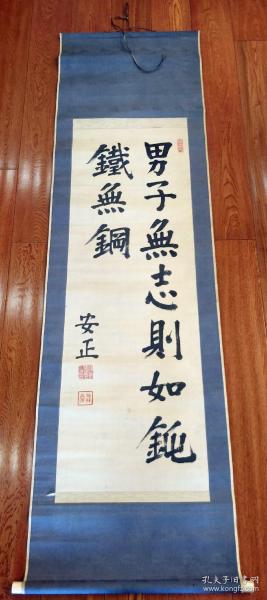 男子無志則如鈍
鐵無鋼
安正
孔夫子旧书网
www.kongfz.com